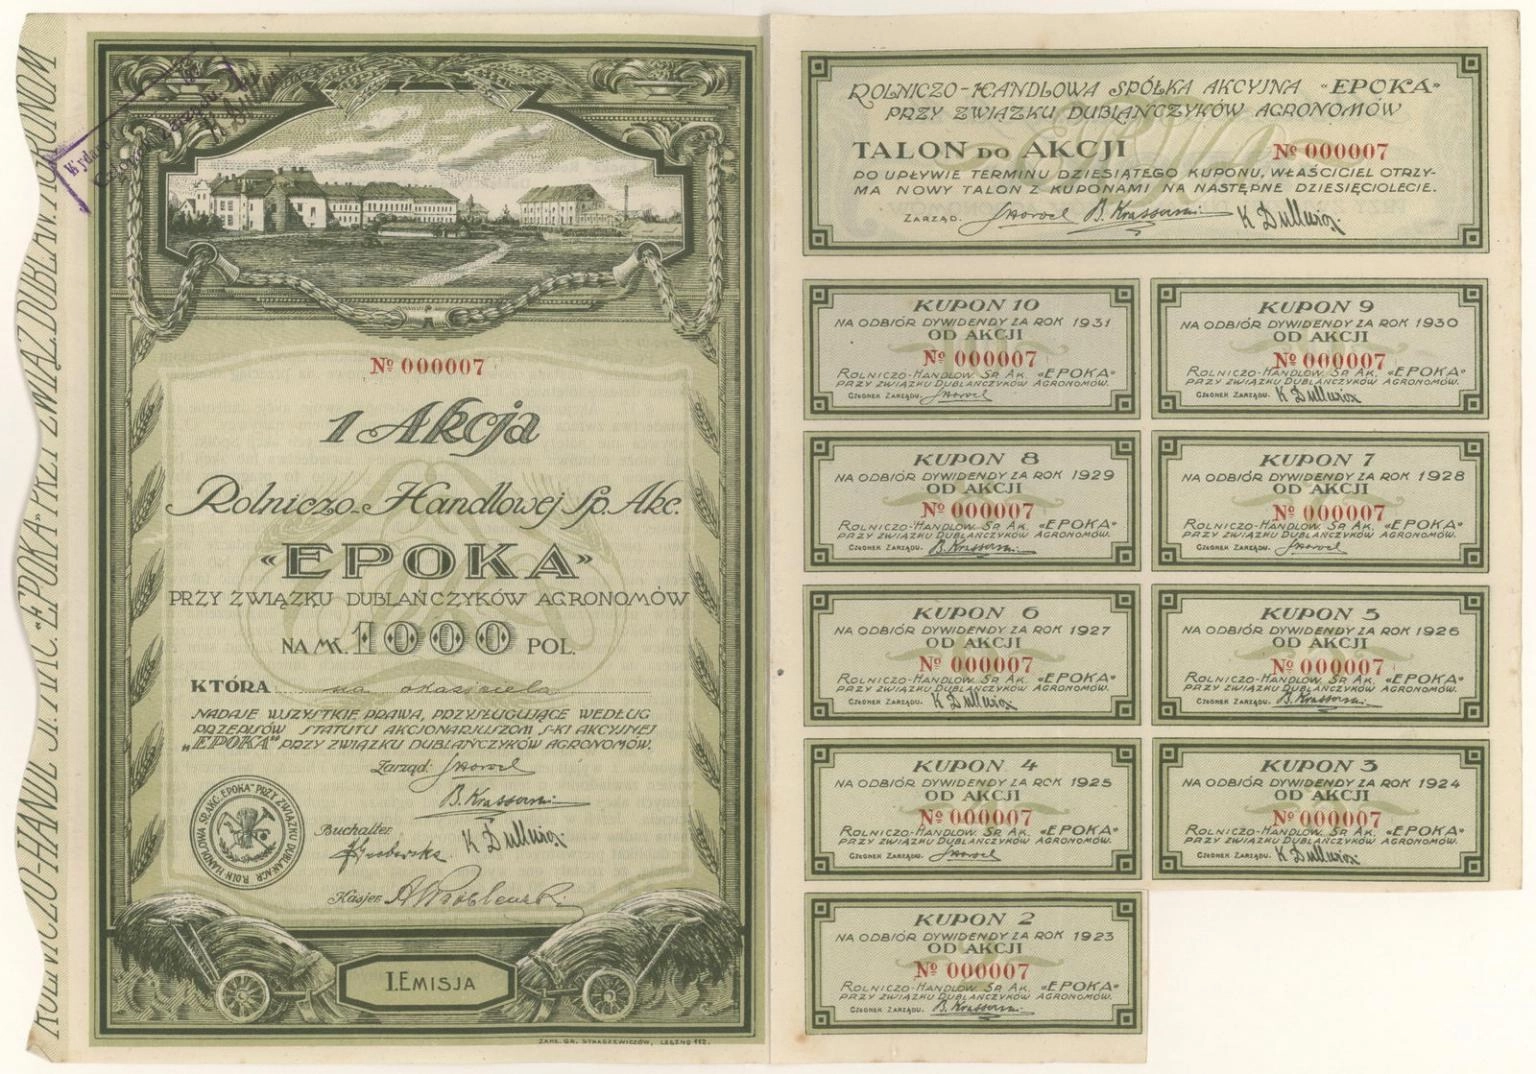 ROLNICZO-HANDL. SP. AKC. «EPOKA» PRZY ZWIĄZ. DUBLAŃ. AGRONOM
Wydano
Członek zarządu
№ 000007
1 Akcja
Rolniczo-Handlowej Sp. Akc.
«EPOKA»
PRZY ZWIĄZKU DUBLAŃCZYKÓW AGRONOMÓW
NA MK. 1000 POL.
KTÓRA na okaziciela
NADAJE WSZYSTKIE PRAWA, PRZYSŁUGUJĄCE WEDŁUG
PRZEPISÓW STATUTU AKCJONARJUSZOM S-KI AKCYJNEJ
„EPOKA" PRZY ZWIĄZKU DUBLAŃCZYKÓW AGRONOMÓW.
Zarząd:
B. Krassowski
Buchalter
K Dulluig
Kasjer A Wróblewski
ROLN HANDLOWA SP. AKC. „EPOKA" PRZY ZWIĄZKU DUBLAN. AGR.
I. EMISJA
ZAKŁ. GR. STRASZEWICZÓW, LESZNO 112.
ROLNICZO-HANDLOWA SPÓŁKA AKCYJNA «EPOKA»
PRZY ZWIĄZKU DUBLAŃCZYKÓW AGRONOMÓW
TALON DO AKCJI № 000007
PO UPŁYWIE TERMINU DZIESIĄTEGO KUPONU, WŁAŚCICIEL OTRZY-
MA NOWY TALON Z KUPONAMI NA NASTĘPNE DZIESIĘCIOLECIE.
ZARZĄD. B. Krassowski K Dulluig
KUPON 10
NA ODBIÓR DYWIDENDY ZA ROK 1931
OD AKCJI
№ 000007
ROLNICZO-HANDLOW. SP. AK. «EPOKA»
PRZY ZWIĄZKU DUBLAŃCZYKÓW AGRONOMÓW.
CZŁONEK ZARZĄDU.
KUPON 9
NA ODBIÓR DYWIDENDY ZA ROK 1930
OD AKCJI
№ 000007
ROLNICZO-HANDLOW. SP. AK. «EPOKA»
PRZY ZWIĄZKU DUBLAŃCZYKÓW AGRONOMÓW.
CZŁONEK ZARZĄDU. K Dulluig
KUPON 8
NA ODBIÓR DYWIDENDY ZA ROK 1929
OD AKCJI
№ 000007
ROLNICZO-HANDLOW. SP. AK. «EPOKA»
PRZY ZWIĄZKU DUBLAŃCZYKÓW AGRONOMÓW.
CZŁONEK ZARZĄDU. B. Krassowski
KUPON 7
NA ODBIÓR DYWIDENDY ZA ROK 1928
OD AKCJI
№ 000007
ROLNICZO-HANDLOW. SP. AK. «EPOKA»
PRZY ZWIĄZKU DUBLAŃCZYKÓW AGRONOMÓW.
CZŁONEK ZARZĄDU.
KUPON 6
NA ODBIÓR DYWIDENDY ZA ROK 1927
OD AKCJI
№ 000007
ROLNICZO-HANDLOW. SP. AK. «EPOKA»
PRZY ZWIĄZKU DUBLAŃCZYKÓW AGRONOMÓW.
CZŁONEK ZARZĄDU. K Dulluig
KUPON 5
NA ODBIÓR DYWIDENDY ZA ROK 1926
OD AKCJI
№ 000007
ROLNICZO-HANDLOW. SP. AK. «EPOKA»
PRZY ZWIĄZKU DUBLAŃCZYKÓW AGRONOMÓW.
CZŁONEK ZARZĄDU. B. Krassowski
KUPON 4
NA ODBIÓR DYWIDENDY ZA ROK 1925
OD AKCJI
№ 000007
ROLNICZO-HANDLOW. SP. AK. «EPOKA»
PRZY ZWIĄZKU DUBLAŃCZYKÓW AGRONOMÓW.
CZŁONEK ZARZĄDU.
KUPON 3
NA ODBIÓR DYWIDENDY ZA ROK 1924
OD AKCJI
№ 000007
ROLNICZO-HANDLOW. SP. AK. «EPOKA»
PRZY ZWIĄZKU DUBLAŃCZYKÓW AGRONOMÓW.
CZŁONEK ZARZĄDU. K Dulluig
KUPON 2
NA ODBIÓR DYWIDENDY ZA ROK 1923
OD AKCJI
№ 000007
ROLNICZO-HANDLOW. SP. AK. «EPOKA»
PRZY ZWIĄZKU DUBLAŃCZYKÓW AGRONOMÓW.
CZŁONEK ZARZĄDU. B. Krassowski